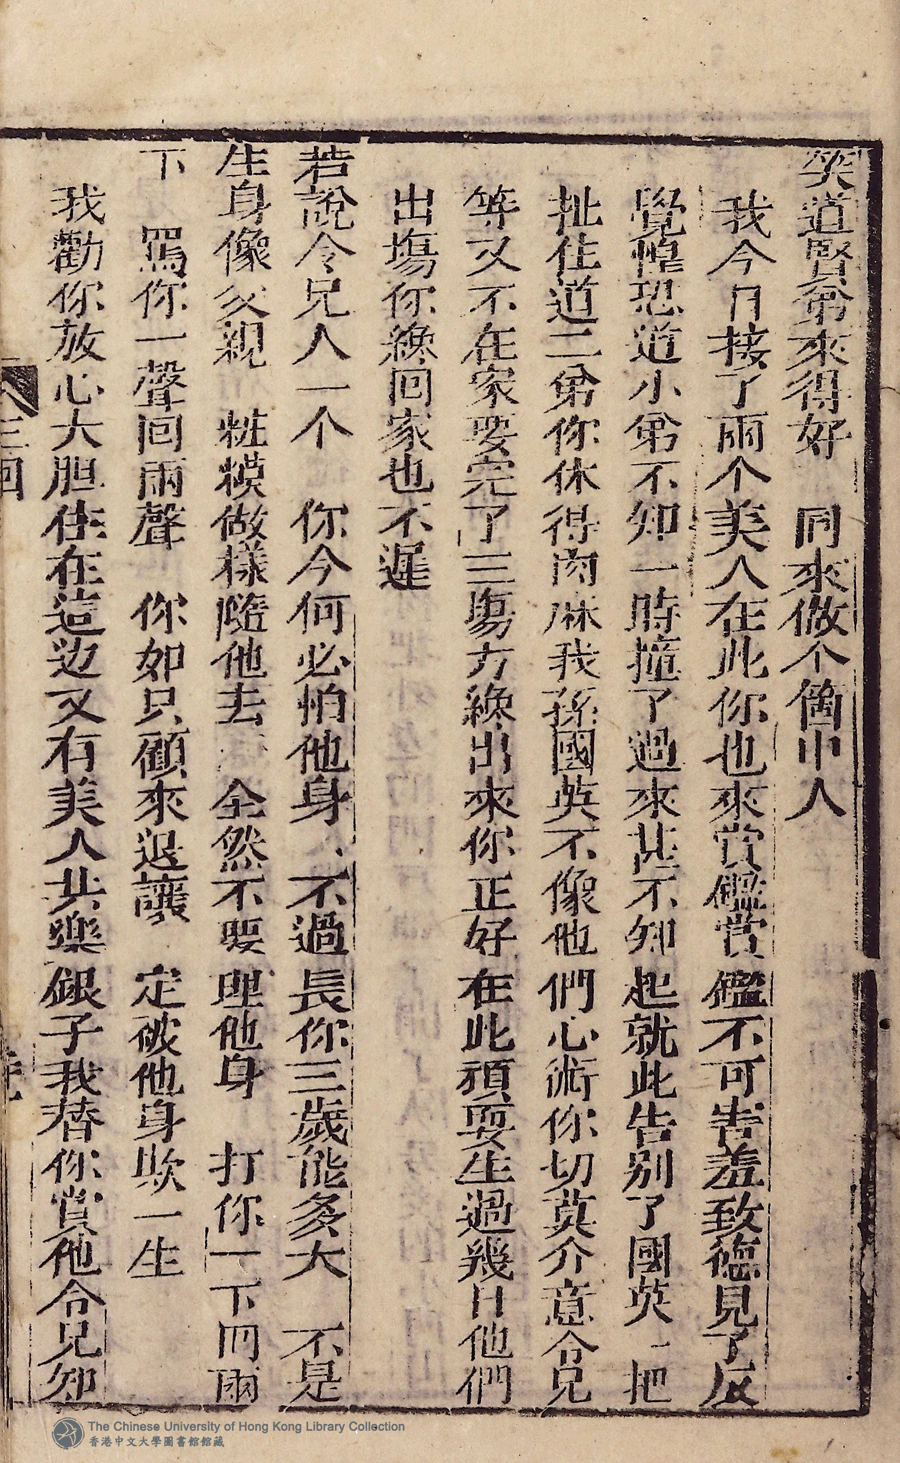 笑道賢弟來得好　同來做个箇中人
我今日接了兩个美人在此你也來賞鑑賞鑑不可害羞致德見了反
覺惶恐道小弟不知一時撞了過來甚不知起就此告别了國英一把
扯住道二弟你休得肉麻我孫國英不像他們心術你切莫介意令兄
等又不在家要完了三塲方纔出來你正好在此頑耍生過幾日他們
出塲你纔回家也不遲
若說令兄人一个　你今何必怕他身　不過長你三歲能多大　不是
生身像父親　粧模做樣隨他去　全然不要理他身　打你一下囘兩
下　罵你一聲囘兩聲　你如只顧來退讓　定破他身欺一生
我勸你放心大胆住在這边又有美人共樂銀子我替你賞他令兄知
三回
The Chinese University of Hong Kong Library Collection
香港中文大學圖書館館藏